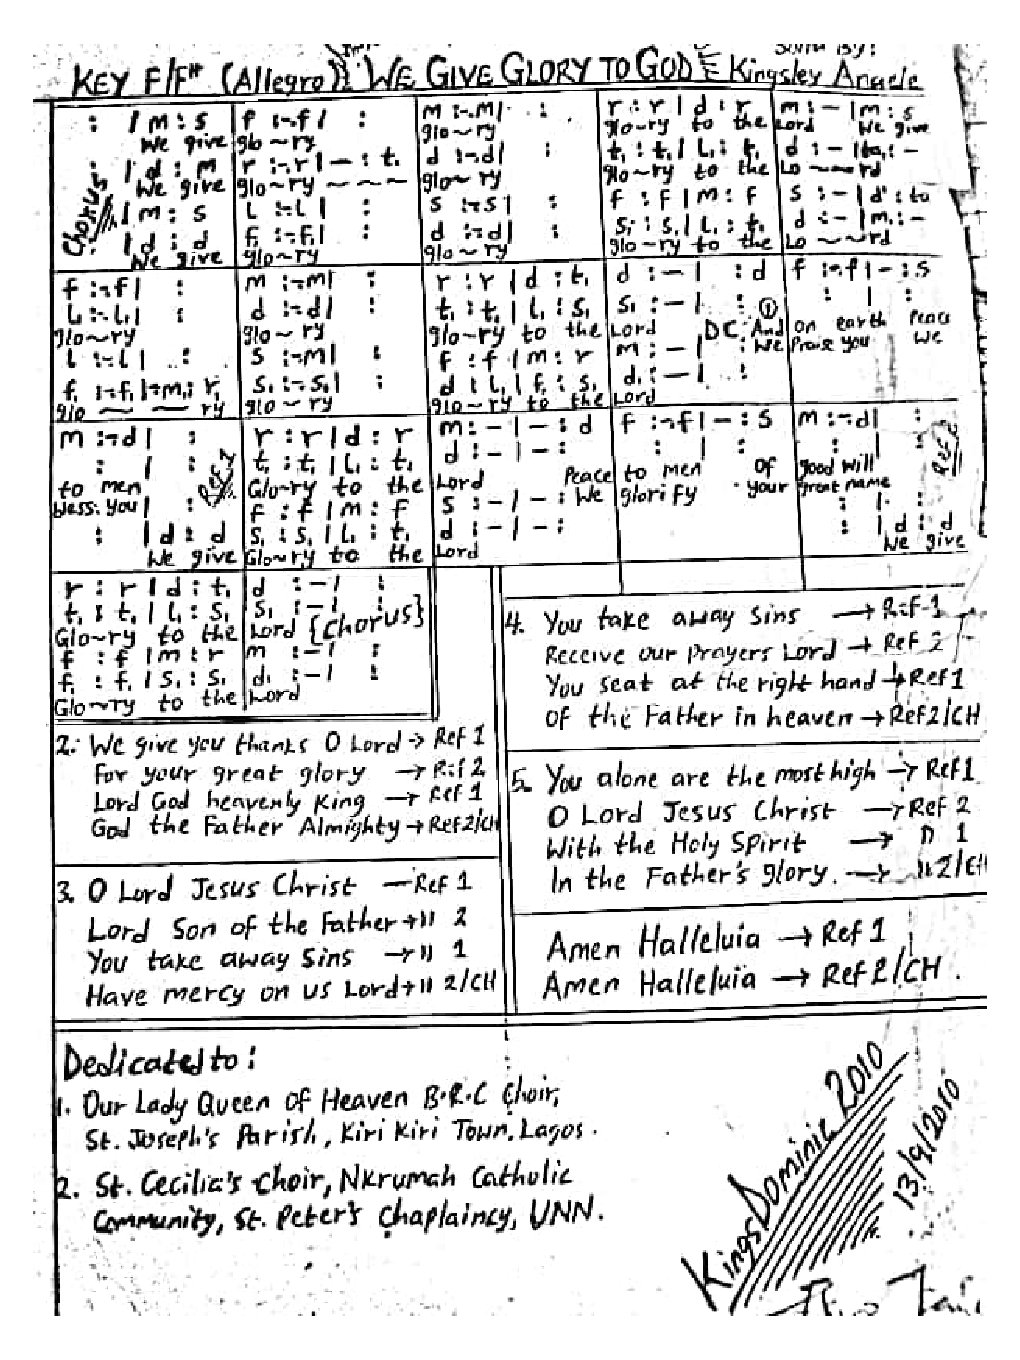 KEY F/F# (Allegro) WE GIVE GLORY TO GOD Kingsley Angele
: | m : s f :-.f | : m :-.m | : r : r | d : r m : - | m : s
We give glo~ry glo~ry glo~ry to the Lord We give
: | d : m r :-.r | - : t, d :-.d | : t, : t, | l, : t, d : - | ta, : -
We give glo~ry ~~~ glo~ry glo~ry to the Lo~~rd
Chorus | m : s l :-.l | : s :-.s | : f : f | m : f s : - | d' : ta
| d : d f, :-.f, | : d :-.d | : s, : s, | l, : t, d : - | m, : -
We give glo~ry glo~ry glo~ry to the Lo~~rd
f :-.f | : m :-.m | : r : r | d : t, d : - | : d f :-.f | - : s
l, :-.l, | : d :-.d | : t, : t, | l, : s, s, : - | : : | :
glo~ry glo~ry glo~ry to the Lord D.C. ① And on earth Peace
l :-.l | : s :-.m | : f : f | m : r m : - | : We Praise you We
f, :-.f, |-.m, : r, s, :-.s, | : d : l, | f, : s, d, : - | :
glo ~ ~ ry glo~ry glo~ry to the Lord
m :-.d | : r : r | d : r m : - | - : d f :-.f | - : s m :-.d | :
: | : t, : t, | l, : t, d : - | - : : | : : | :
to men Ref. 2 Glo~ry to the Lord Peace to men of good will Ref 2
bless you | : f : f | m : f s : - | - : We glorify your great name
: | d : d s, : s, | l, : t, d : - | - : : | d : d
We give Glo~ry to the Lord We give
r : r | d : t, d : - | :
t, : t, | l, : s, s, : - | :
Glo~ry to the Lord {Chorus}
f : f | m : r m : - | :
f, : f, | s, : s, d, : - | :
Glo~ry to the Lord
2. We give you thanks O Lord → Ref 1
For your great glory → Ref 2
Lord God heavenly King → Ref 1
God the Father Almighty → Ref 2/CH
3. O Lord Jesus Christ — Ref 1
Lord Son of the Father → 11 2
You take away Sins → 11 1
Have mercy on us Lord → 11 2/CH
4. You take away Sins → Ref-1
Receive our Prayers Lord → Ref 2
You seat at the right hand → Ref 1
of the Father in heaven → Ref 2/CH
5. You alone are the most high → Ref 1
O Lord Jesus Christ → Ref 2
With the Holy Spirit → 11 1
In the Father's glory. → 11 2/CH
Amen Halleluia → Ref 1
Amen Halleluia → Ref 2/CH.
Dedicated to:
1. Our Lady Queen of Heaven B.R.C Choir,
St. Joseph's Parish, Kiri Kiri Town, Lagos.
2. St. Cecilia's Choir, Nkrumah Catholic
Community, St. Peter's Chaplaincy, UNN.
KingsDominic 2010
13/9/2010